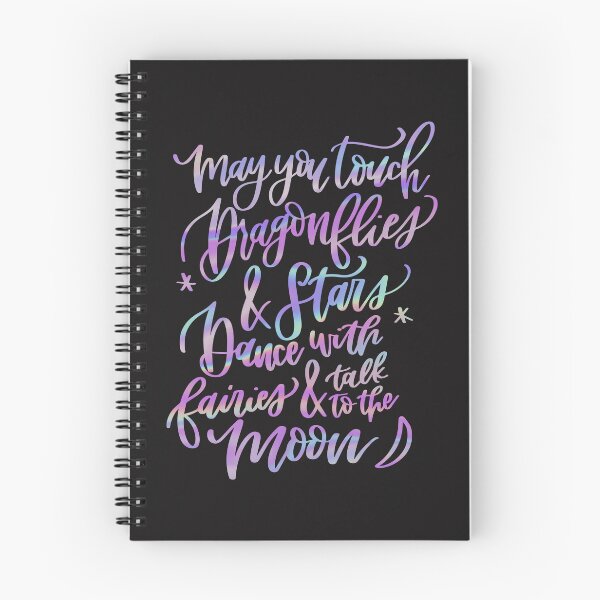 May you touch
Dragonflies
& Stars
Dance with
fairies & talk
to the
Moon